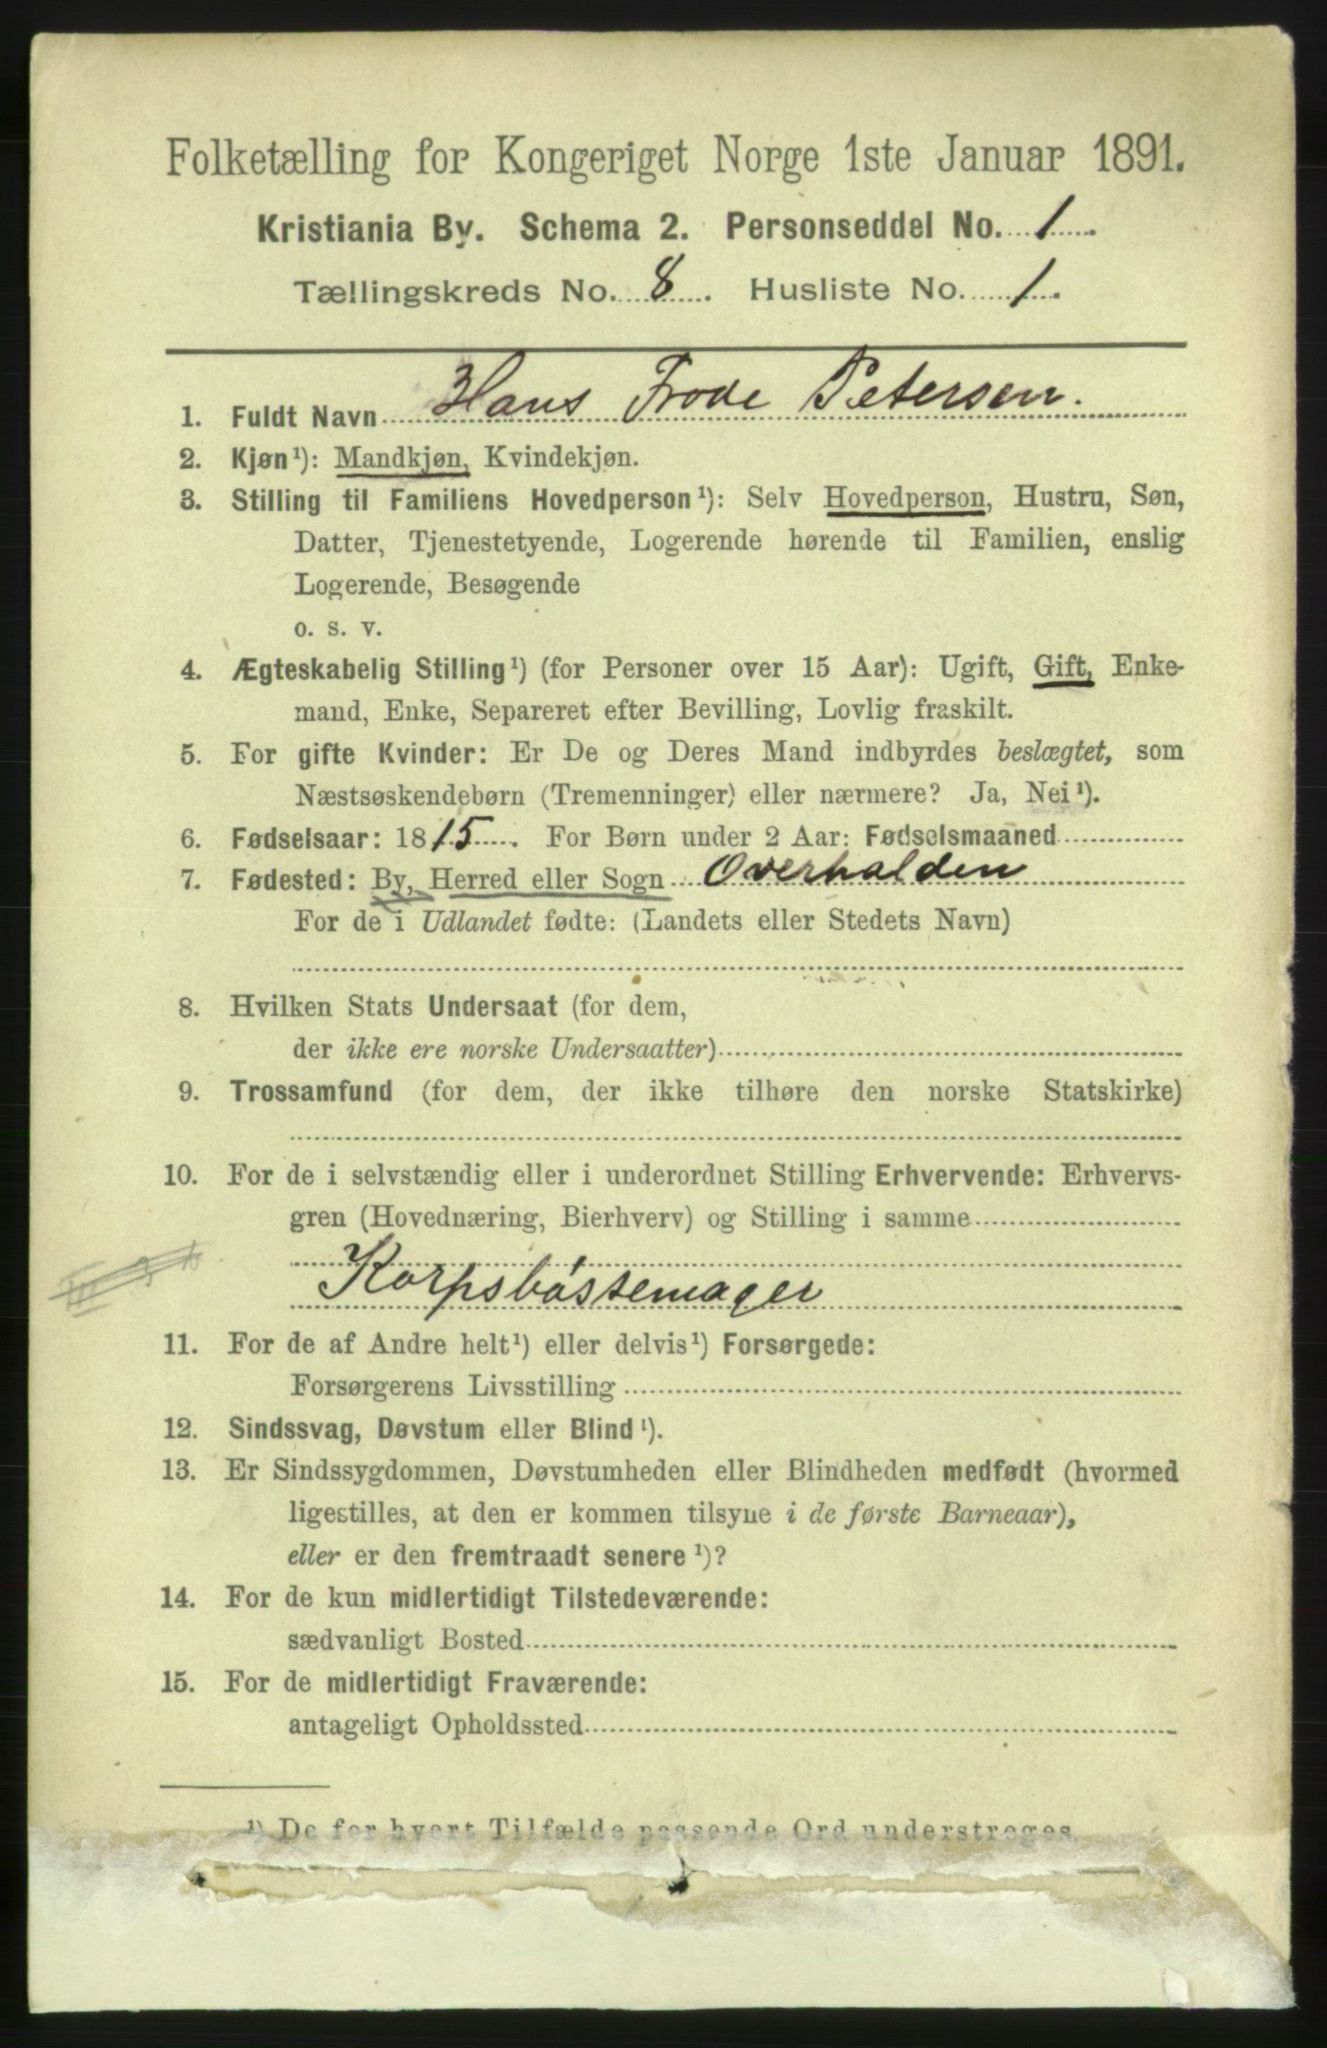 Folketælling for Kongeriget Norge 1ste Januar 1891.
Kristiania By. Schema 2. Personseddel No. 1.
Tællingskreds No. 8. Husliste No. 1.
1. Fuldt Navn Hans Frode Petersen.
2. Kjøn¹): Mandkjøn, Kvindekjøn.
3. Stilling til Familiens Hovedperson¹): Selv Hovedperson, Hustru, Søn,
Datter, Tjenestetyende, Logerende hørende til Familien, enslig
Logerende, Besøgende
o. s. v.
4. Ægteskabelig Stilling¹) (for Personer over 15 Aar): Ugift, Gift, Enke-
mand, Enke, Separeret efter Bevilling, Lovlig fraskilt.
5. For gifte Kvinder: Er De og Deres Mand indbyrdes beslægtet, som
Næstsøskendebørn (Tremenninger) eller nærmere? Ja, Nei¹).
6. Fødselsaar: 1815. For Børn under 2 Aar: Fødselsmaaned
7. Fødested: By, Herred eller Sogn Overhalden
For de i Udlandet fødte: (Landets eller Stedets Navn)
8. Hvilken Stats Undersaat (for dem,
der ikke ere norske Undersaatter)
9. Trossamfund (for dem, der ikke tilhøre den norske Statskirke)
10. For de i selvstændig eller i underordnet Stilling Erhvervende: Erhvervs-
gren (Hovednæring, Bierhverv) og Stilling i samme
Korpsbøssemager
11. For de af Andre helt¹) eller delvis¹) Forsørgede:
Forsørgerens Livsstilling
12. Sindssvag, Døvstum eller Blind¹).
13. Er Sindssygdommen, Døvstumheden eller Blindheden medfødt (hvormed
ligestilles, at den er kommen tilsyne i de første Barneaar),
eller er den fremtraadt senere¹)?
14. For de kun midlertidigt Tilstedeværende:
sædvanligt Bosted
15. For de midlertidigt Fraværende:
antageligt Opholdssted
¹) De for hvert Tilfælde passende Ord understreges.